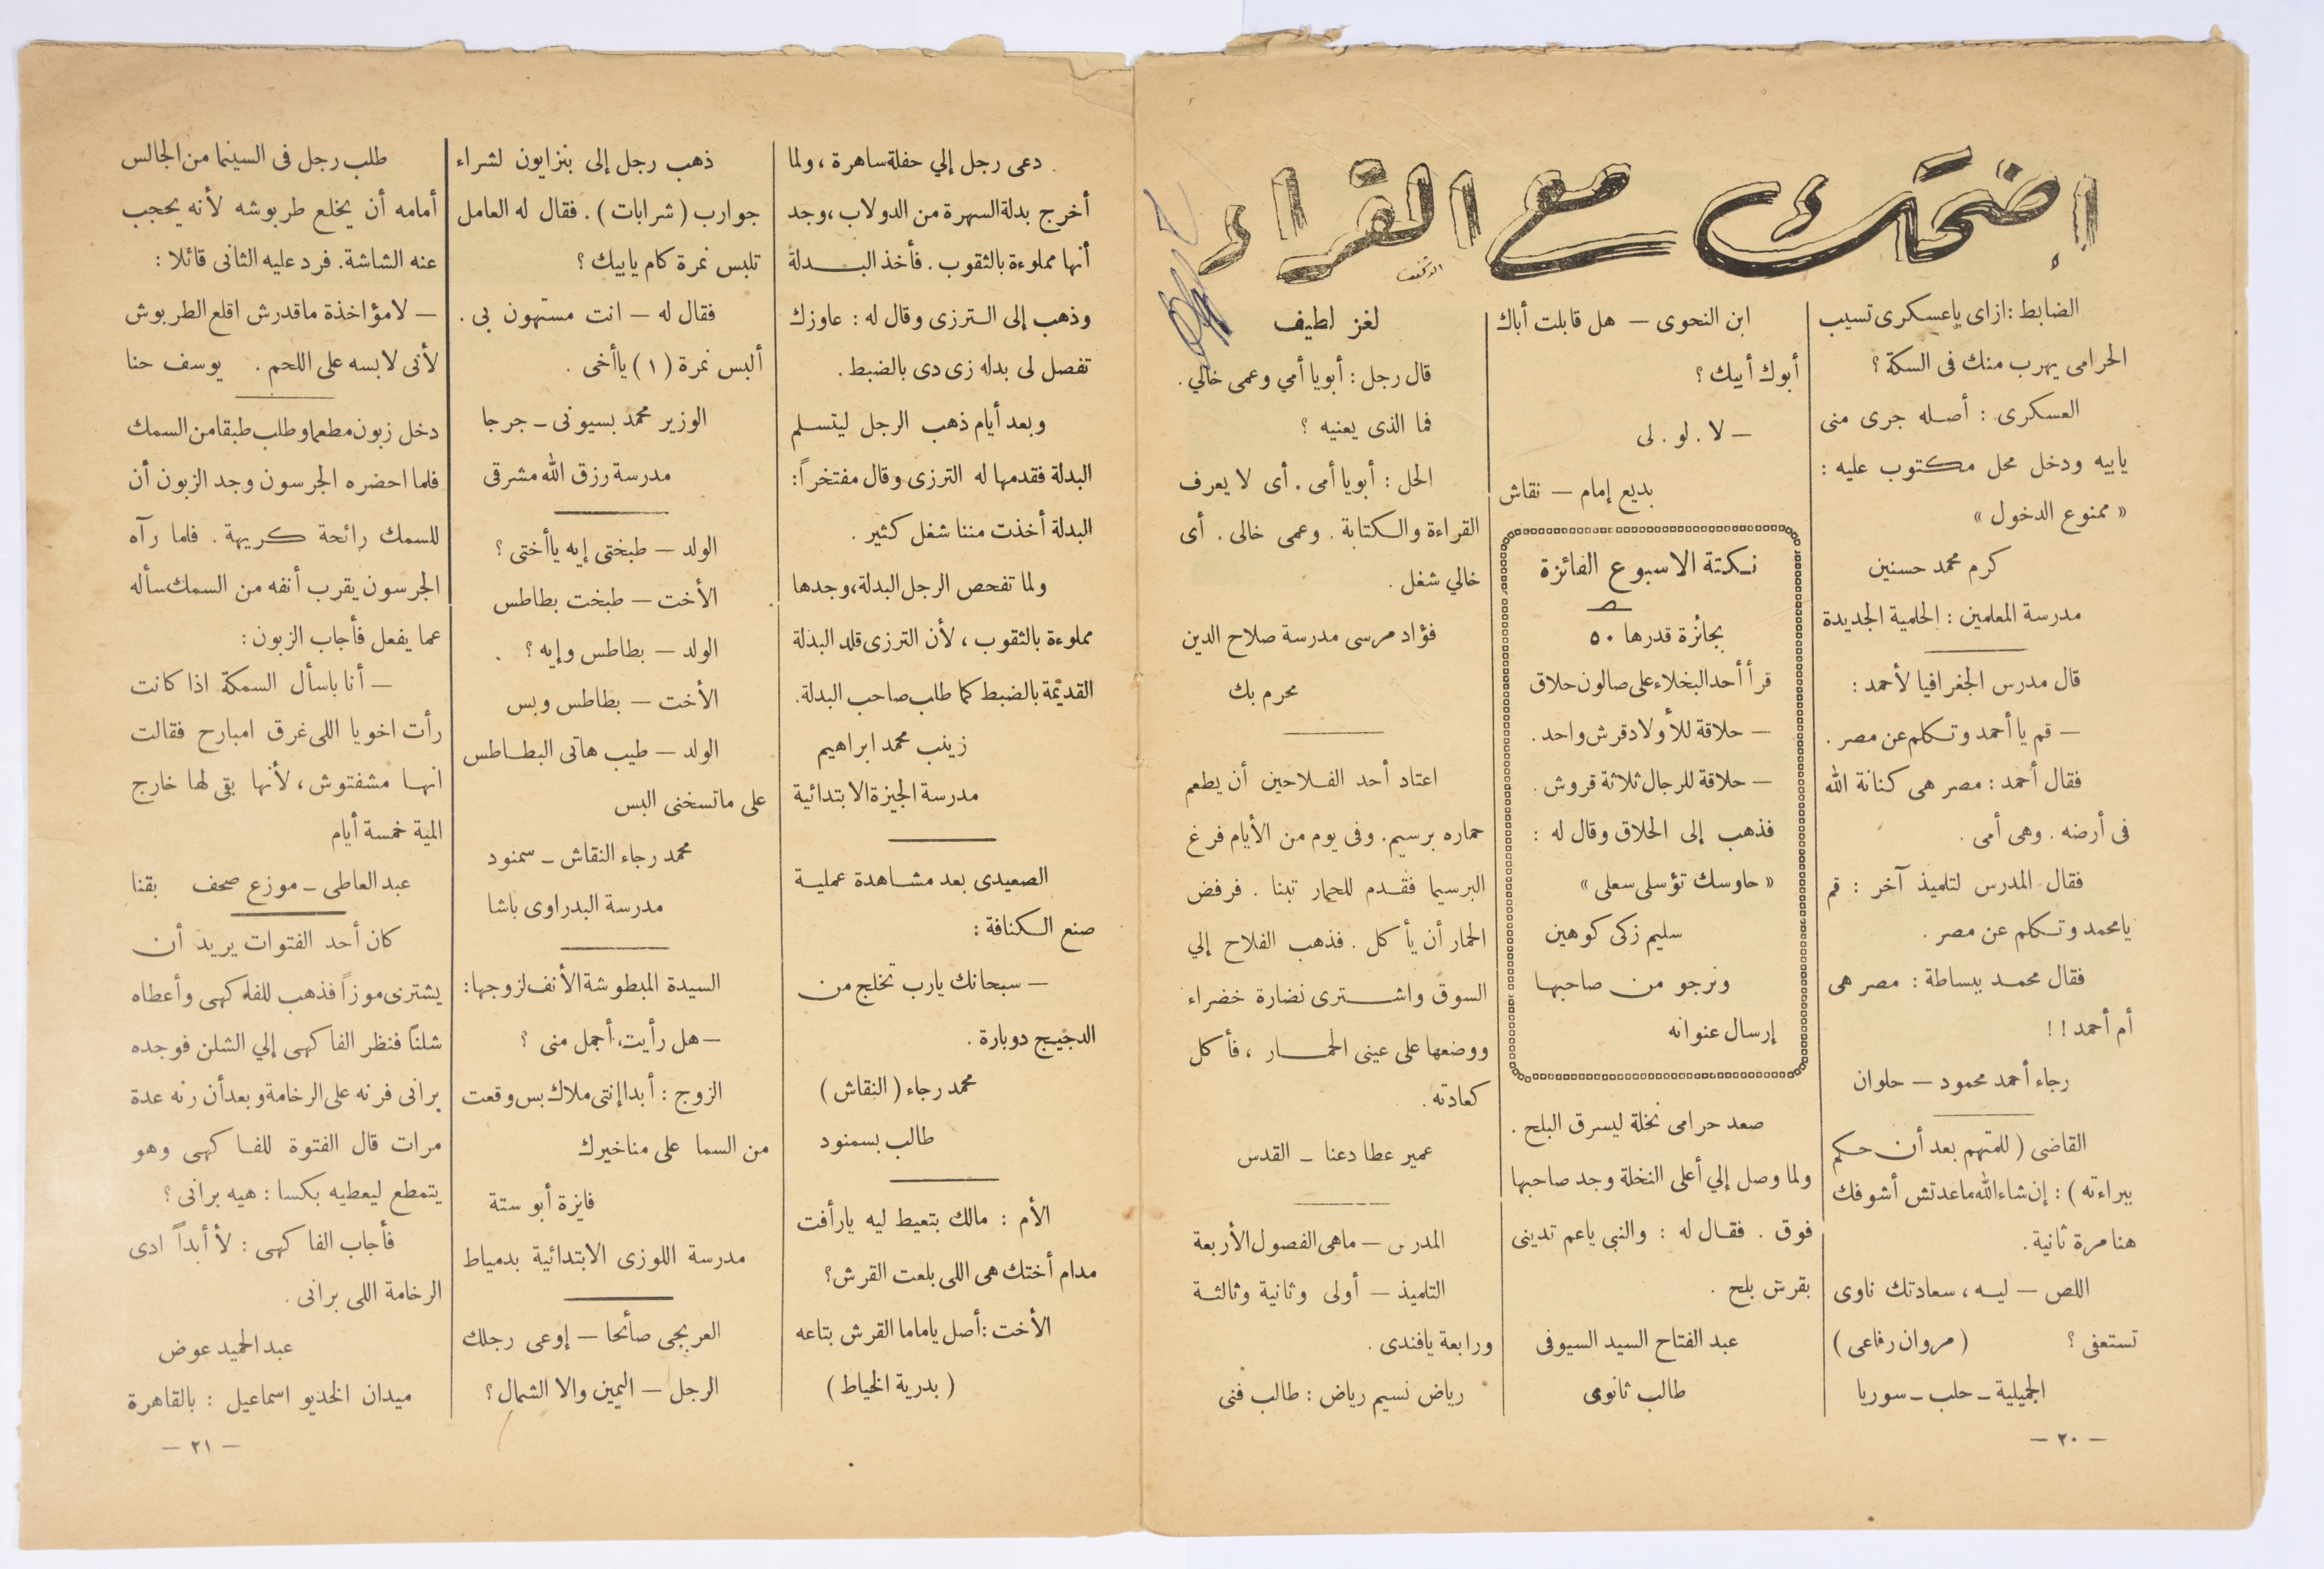 إضحك مع القراء
الضابط : ازاى ياعسكرى تسيب
الحرامى يهرب منك فى السكة ؟
العسكرى : أصله جرى منى
يابيه ودخل محل مكتوب عليه :
« ممنوع الدخول »
كرم محمد حسنين
مدرسة المعلمين : الحلمية الجديدة
قال مدرس الجغرافيا لأحمد :
— قم يا أحمد وتكلم عن مصر .
فقال أحمد : مصر هى كنانة الله
فى أرضه . وهى أمى .
فقال المدرس لتلميذ آخر : قم
يامحمد وتكلم عن مصر .
فقال محمد ببساطة : مصر هى
أم أحمد ! !
رجاء أحمد محمود — حلوان
القاضى ( للمتهم بعد أن حكم
ببراءته ) : إن شاء الله ماعدتش أشوفك
هنا مرة ثانية .
اللص — ليه ، سعادتك ناوى
تستعفى ؟ ( مروان رفاعى )
الجميلية — حلب — سوريا
ابن النحوى — هل قابلت أباك
أبوك أبيك ؟
— لا . لو . لى
بديع إمام — نقاش
نكتة الاسبوع الفائزة
بجائزة قدرها ٥٠
قرأ أحد البخلاء على صالون حلاق
— حلاقة للأولاد قرش واحد .
— حلاقة للرجال ثلاثة قروش .
فذهب إلى الحلاق وقال له :
« حاوسك تؤسلى سعلى »
سليم زكى كوهين
ونرجو من صاحبها
إرسال عنوانه
صعد حرامى نخلة ليسرق البلح .
ولما وصل إلي أعلى النخلة وجد صاحبها
فوق . فقال له : والنبى ياعم تدينى
بقرش بلح .
عبد الفتاح السيد السيوفى
طالب ثانوى
لغز لطيف
قال رجل : أبويا أمي وعمى خالي .
فما الذى يعنيه ؟
الحل : أبويا أمى . أى لا يعرف
القراءة والكتابة . وعمى خالى . أى
خالي شغل .
فؤاد مرسى مدرسة صلاح الدين
محرم بك
اعتاد أحد الفلاحين أن يطعم
حماره برسيم . وفى يوم من الأيام فرغ
البرسيم فقدم للحمار تبنا . فرفض
الحمار أن يأكل . فذهب الفلاح إلي
السوق واشترى نضارة خضراء
ووضعها على عينى الحمار ، فأكل
كعادته .
عمير عطا دعنا — القدس
المدرس — ماهى الفصول الأربعة
التلميذ — أولى وثانية وثالثة
ورابعة يافندى .
رياض نسيم رياض : طالب فنى
— ٢٠ —
دعى رجل إلي حفلة ساهرة ، ولما
أخرج بدلة السهرة من الدولاب ، وجد
أنها مملوءة بالثقوب . فأخذ البدلة
وذهب إلى الترزى وقال له : عاوزك
تفصل لى بدله زى دى بالضبط .
وبعد أيام ذهب الرجل ليتسلم
البدلة فقدمها له الترزى وقال مفتخراً :
البدلة أخذت مننا شغل كثير .
ولما تفحص الرجل البدلة ، وجدها
مملوءة بالثقوب ، لأن الترزى قلد البدلة
القديمة بالضبط كما طلب صاحب البدلة .
زينب محمد ابراهيم
مدرسة الجيزة الابتدائية
الصعيدى بعد مشاهدة عملية
صنع الكنافة :
— سبحانك يارب تخلج من
الدجيج دوبارة .
محمد رجاء ( النقاش )
طالب بسمنود
الأم : مالك بتعيط ليه يارأفت
مدام أختك هى اللى بلعت القرش ؟
الأخت : أصل ياماما القرش بتاعه
( بدرية الخياط )
ذهب رجل إلى بنزايون لشراء
جوارب ( شرابات ) . فقال له العامل
تلبس نمرة كام يابيك ؟
فقال له — انت مستهون بى .
ألبس نمرة ( ١ ) ياأخى .
الوزير محمد بسيونى — جرجا
مدرسة رزق الله مشرقى
الولد — طبختى إيه ياأختى ؟
الأخت — طبخت بطاطس
الولد — بطاطس وإيه ؟
الأخت — بطاطس وبس
الولد — طيب هاتى البطاطس
على ماتسخنى البس
محمد رجاء النقاش — سمنود
مدرسة البدراوى باشا
السيدة المبطوشة الأنف لزوجها :
— هل رأيت أجمل منى ؟
الزوج : أبدا إنتى ملاك بس وقعت
من السما على مناخيرك
فايزة أبو ستة
مدرسة اللوزى الابتدائية بدمياط
العربجى صائحا — إوعى رجلك
الرجل — اليمين والا الشمال ؟
طلب رجل فى السينما من الجالس
أمامه أن يخلع طربوشه لأنه يحجب
عنه الشاشة . فرد عليه الثانى قائلا :
— لامؤاخذة ماقدرش اقلع الطربوش
لأنى لابسه على اللحم . يوسف حنا
دخل زبون مطعما وطلب طبقا من السمك
فلما احضره الجرسون وجد الزبون أن
للسمك رائحة كريهة . فلما رآه
الجرسون يقرب أنفه من السمك سأله
عما يفعل فأجاب الزبون :
— أنا باسأل السمكة اذا كانت
رأت اخويا اللى غرق امبارح فقالت
انها مشفتوش ، لأنها بقى لها خارج
المية خمسة أيام
عبد العاطى — موزع صحف بقنا
كان أحد الفتوات يريد أن
يشترى موزاً فذهب للفاكهى وأعطاه
شلنًا فنظر الفاكهى إلي الشلن فوجده
برانى فرنه على الرخامة وبعد أن رنه عدة
مرات قال الفتوة للفاكهى وهو
يتمطع ليعطيه بكسا : هيه برانى ؟
فأجاب الفاكهى : لأ أبداً ادى
الرخامة اللى برانى .
عبد الحميد عوض
ميدان الخديو اسماعيل : بالقاهرة
— ٢١ —